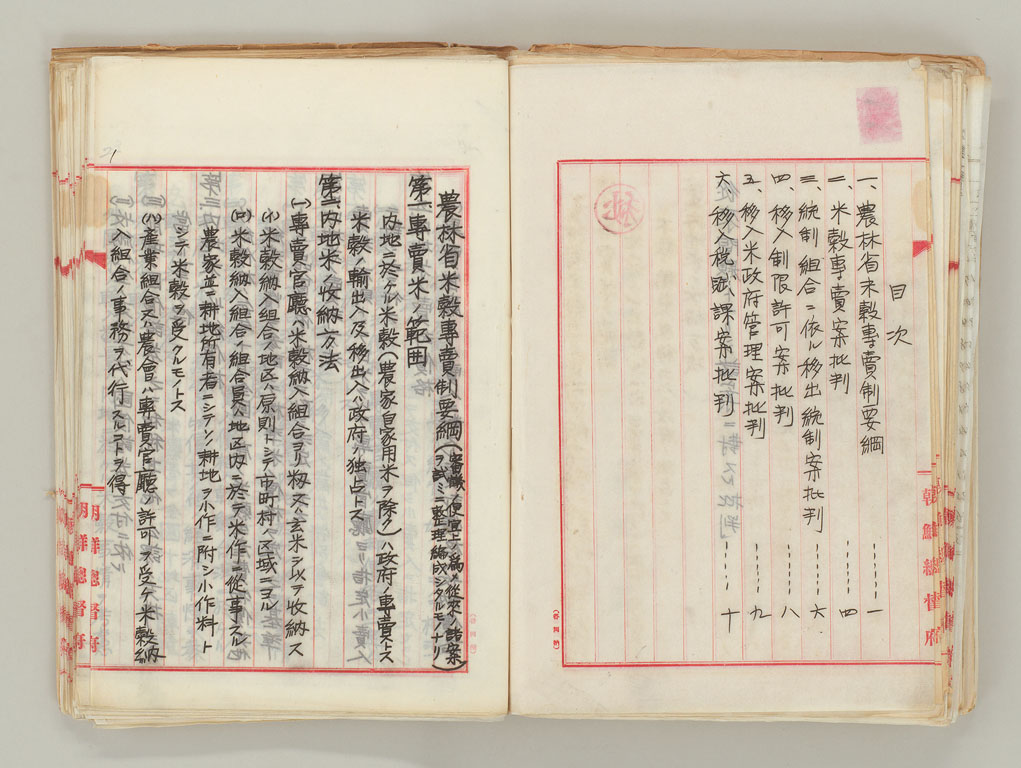 目次
一、農林省米穀專賣制要綱 一
二、米穀專賣案批判 四
三、統制組合ニ依ル移出統制案批判 六
四、移入制限許可案批判 八
五、移入米政府管理案批判 九
六、移入税賦課案批判 十
朝鮮總督府
農林省米穀專賣制要綱(審議ノ便宜上本編ハ從來ノ諸案ヲ試ミニ整理編成シタルモノナリ)
第一、專賣米ノ範囲
内地ニ於ケル米穀(農家自家用米ヲ除ク)ハ政府ノ專賣トス
米穀ノ輸出入及移出入ハ政府ノ独占トス
第二、内地米ノ收納方法
(一)專賣官廳ハ米穀納入組合ヨリ籾又ハ玄米ヲ以テ收納ス
(イ)米穀納入組合ノ地区ハ原則トシテ市町村ノ区域ニヨル
(ロ)米穀納入組合ノ組合員ハ地区内ニ於テ米作ニ從事スル
農家並ニ耕地所有者ニシテソノ耕地ヲ小作ニ附シ小作料ト
シテ米穀ヲ受クルモノトス
(ハ)産業組合又ハ農會ハ專賣官廳ノ許可ヲ受ケ米穀納
入組合ノ事務ヲ代行スルコトヲ得
朝鮮總督府